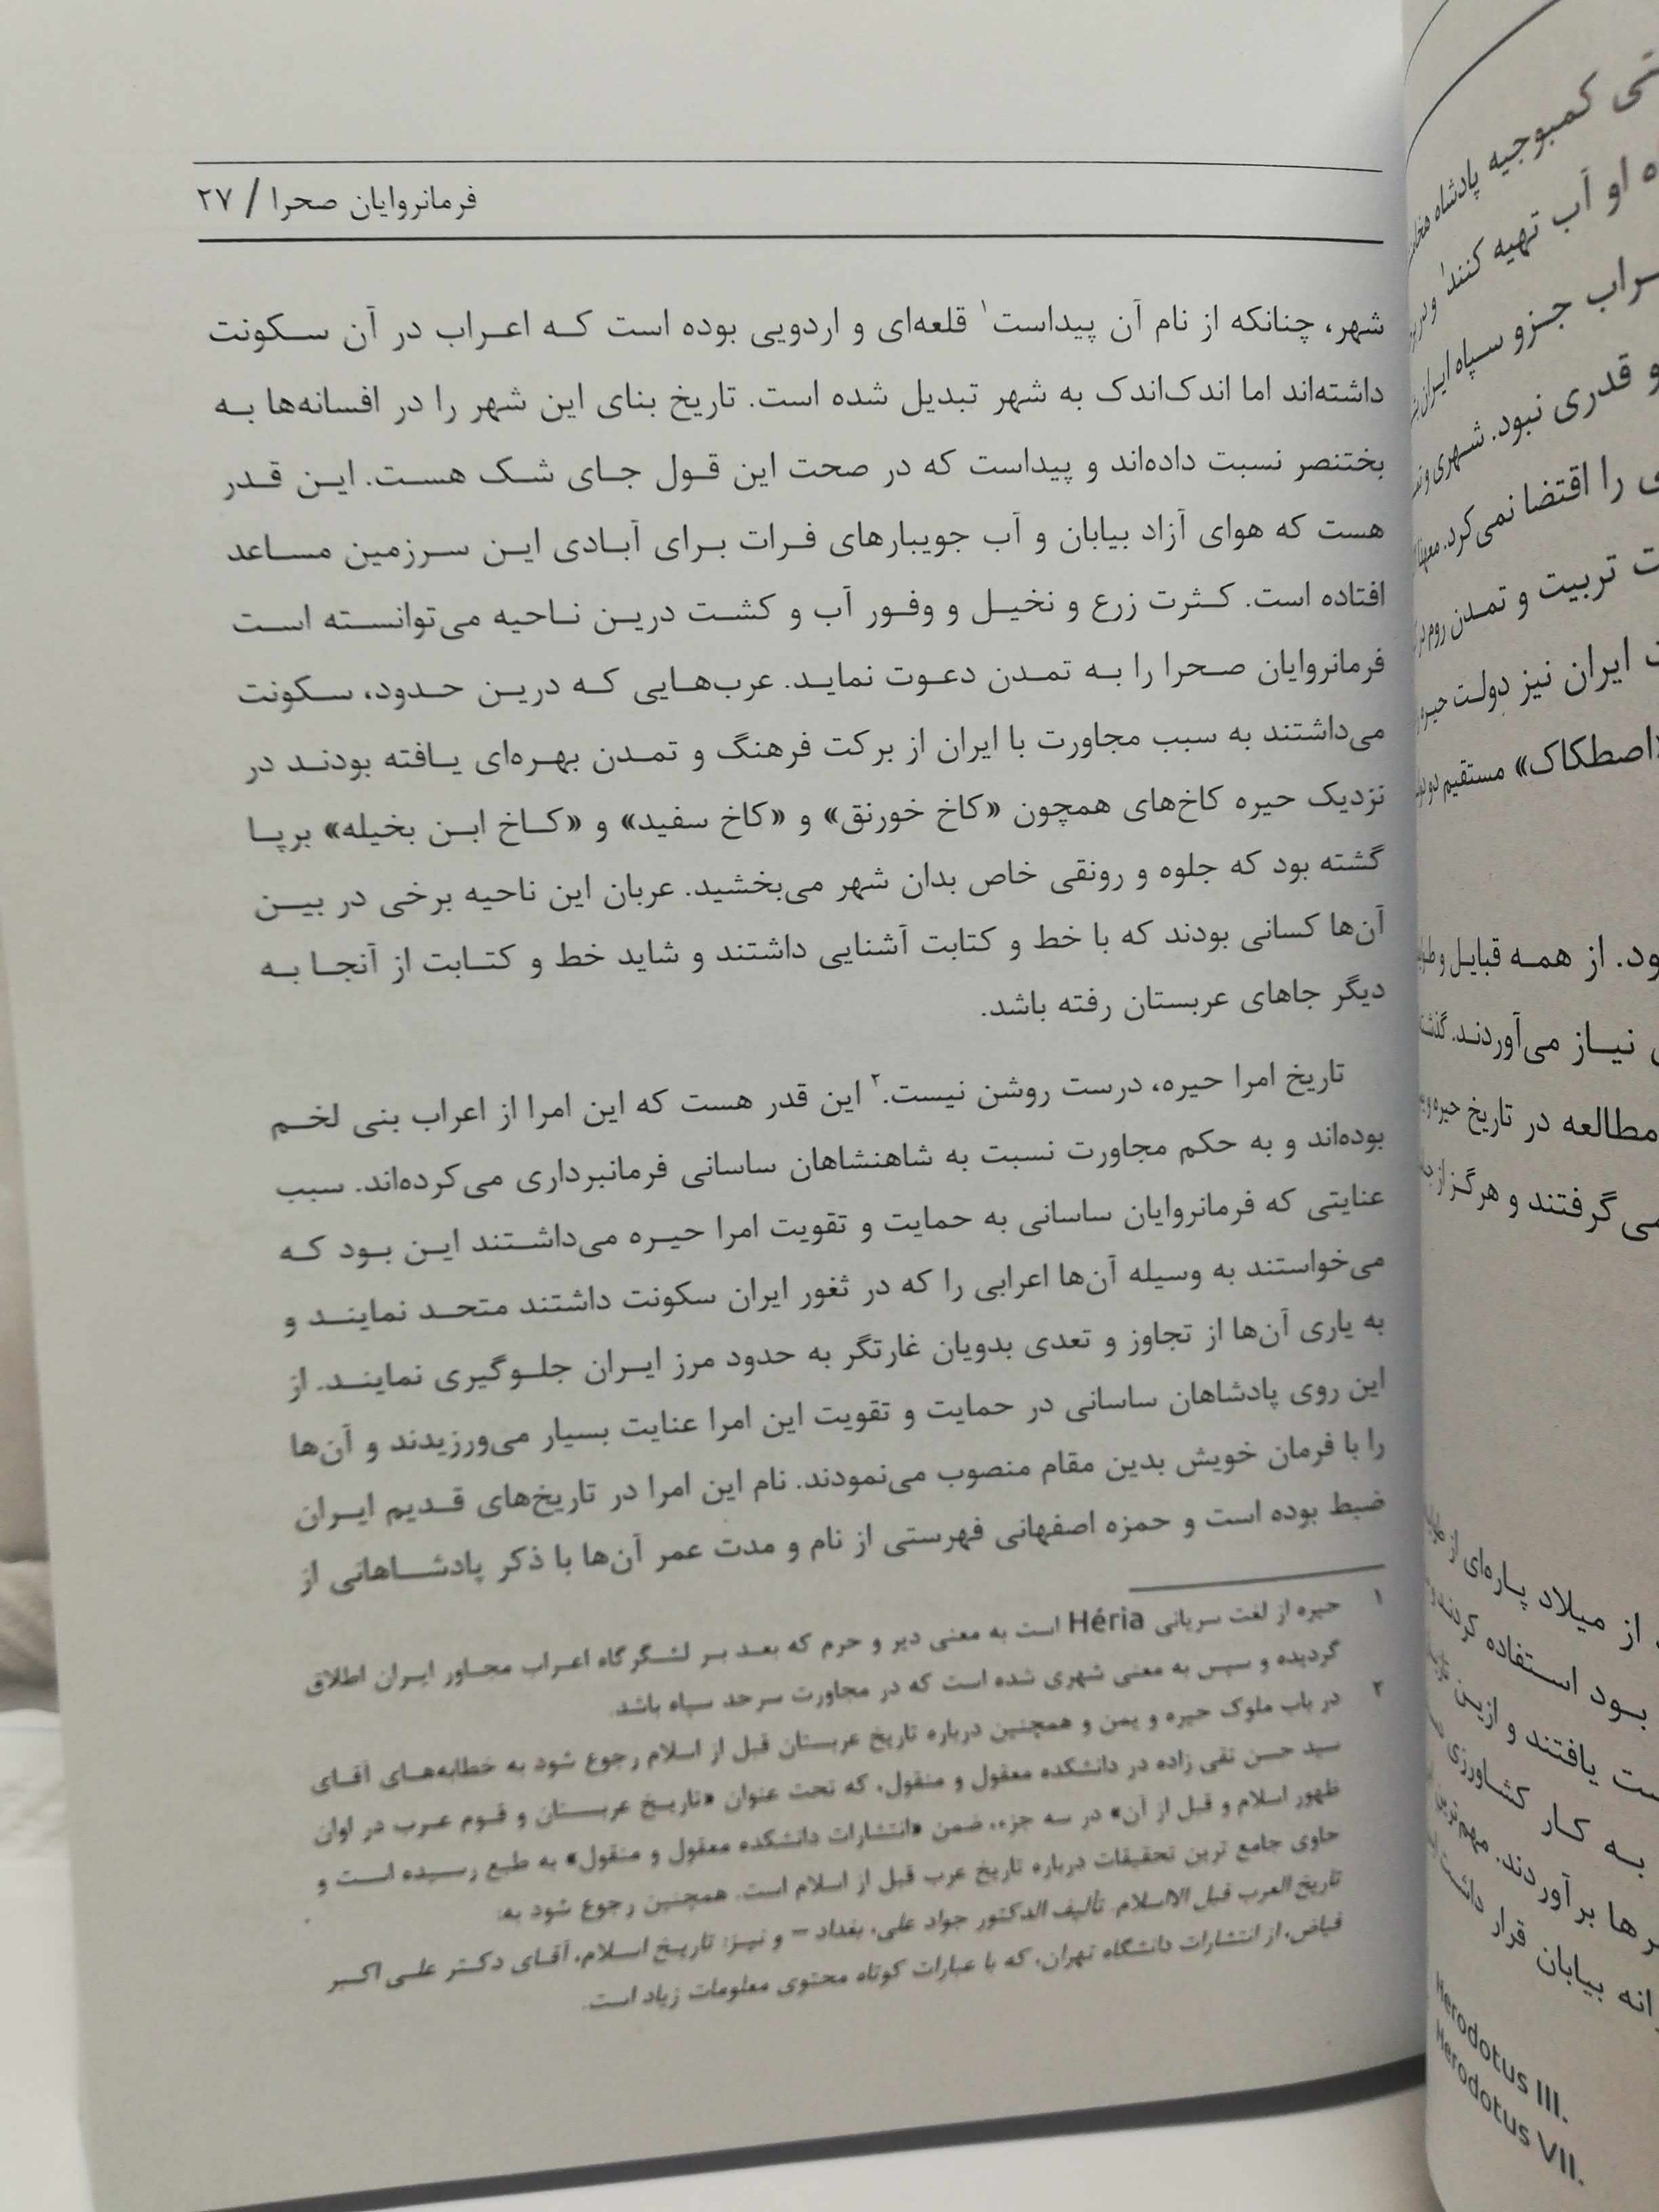 فرمانروایان صحرا / ۲۷
شهر، چنانکه از نام آن پیداست۱ قلعه‌ای و اردویی بوده است که اعراب در آن سکونت
داشته‌اند اما اندک‌اندک به شهر تبدیل شده است. تاریخ بنای این شهر را در افسانه‌ها به
بختنصر نسبت داده‌اند و پیداست که در صحت این قول جای شک هست. این قدر
هست که هوای آزاد بیابان و آب جویبارهای فرات برای آبادی این سرزمین مساعد
افتاده است. کثرت زرع و نخیل و وفور آب و کشت درین ناحیه می‌توانسته است
فرمانروایان صحرا را به تمدن دعوت نماید. عرب‌هایی که درین حدود، سکونت
می‌داشتند به سبب مجاورت با ایران از برکت فرهنگ و تمدن بهره‌ای یافته بودند در
نزدیک حیره کاخ‌های همچون «کاخ خورنق» و «کاخ سفید» و «کاخ ابن بخیله» برپا
گشته بود که جلوه و رونقی خاص بدان شهر می‌بخشید. عربان این ناحیه برخی در بین
آن‌ها کسانی بودند که با خط و کتابت آشنایی داشتند و شاید خط و کتابت از آنجا به
دیگر جاهای عربستان رفته باشد.
تاریخ امرا حیره، درست روشن نیست.۲ این قدر هست که این امرا از اعراب بنی لخم
بوده‌اند و به حکم مجاورت نسبت به شاهنشاهان ساسانی فرمانبرداری می‌کرده‌اند. سبب
عنایتی که فرمانروایان ساسانی به حمایت و تقویت امرا حیره می‌داشتند این بود که
می‌خواستند به وسیله آن‌ها اعرابی را که در ثغور ایران سکونت داشتند متحد نمایند و
به یاری آن‌ها از تجاوز و تعدی بدویان غارتگر به حدود مرز ایران جلوگیری نمایند. از
این روی پادشاهان ساسانی در حمایت و تقویت این امرا عنایت بسیار می‌ورزیدند و آن‌ها
را با فرمان خویش بدین مقام منصوب می‌نمودند. نام این امرا در تاریخ‌های قدیم ایران
ضبط بوده است و حمزه اصفهانی فهرستی از نام و مدت عمر آن‌ها با ذکر پادشاهانی از
۱ حیره از لغت سریانی Héria است به معنی دیر و حرم که بعد بر لشگرگاه اعراب مجاور ایران اطلاق
گردیده و سپس به معنی شهری شده است که در مجاورت سرحد سپاه باشد.
۲ در باب ملوک حیره و یمن و همچنین درباره تاریخ عربستان قبل از اسلام رجوع شود به خطابه‌های آقای
سید حسن تقی زاده در دانشکده معقول و منقول، که تحت عنوان «تاریخ عربستان و قوم عرب در اوان
ظهور اسلام و قبل از آن» در سه جزء، ضمن «انتشارات دانشکده معقول و منقول» به طبع رسیده است و
حاوی جامع ترین تحقیقات درباره تاریخ عرب قبل از اسلام است. همچنین رجوع شود به:
تاریخ العرب قبل الااسلام. تألیف الدکتور جواد علی، بغداد – و نیز: تاریخ اسلام، آقای دکتر علی اکبر
فیاض، از انتشارات دانشگاه تهران، که با عبارات کوتاه محتوی معلومات زیاد است.
کمبوجیه پادشاه
او آب تهیه کنند۱
جزو سپاه ایران
و قدری نبود. شهری
را اقتضا نمی‌کرد.
تربیت و تمدن روم
ایران نیز دولت حیره
«اصطکاک» مستقیم
از همه قبایل
نیاز می‌آوردند.
مطالعه در تاریخ حیره
می گرفتند و هرگز از
از میلاد پاره‌ای از
بود استفاده کردند
یافتند و ازین
به کار کشاورزی
ها برآوردند. مهم‌ترین
بیابان قرار داشت
Herodotus III.
Herodotus VII.